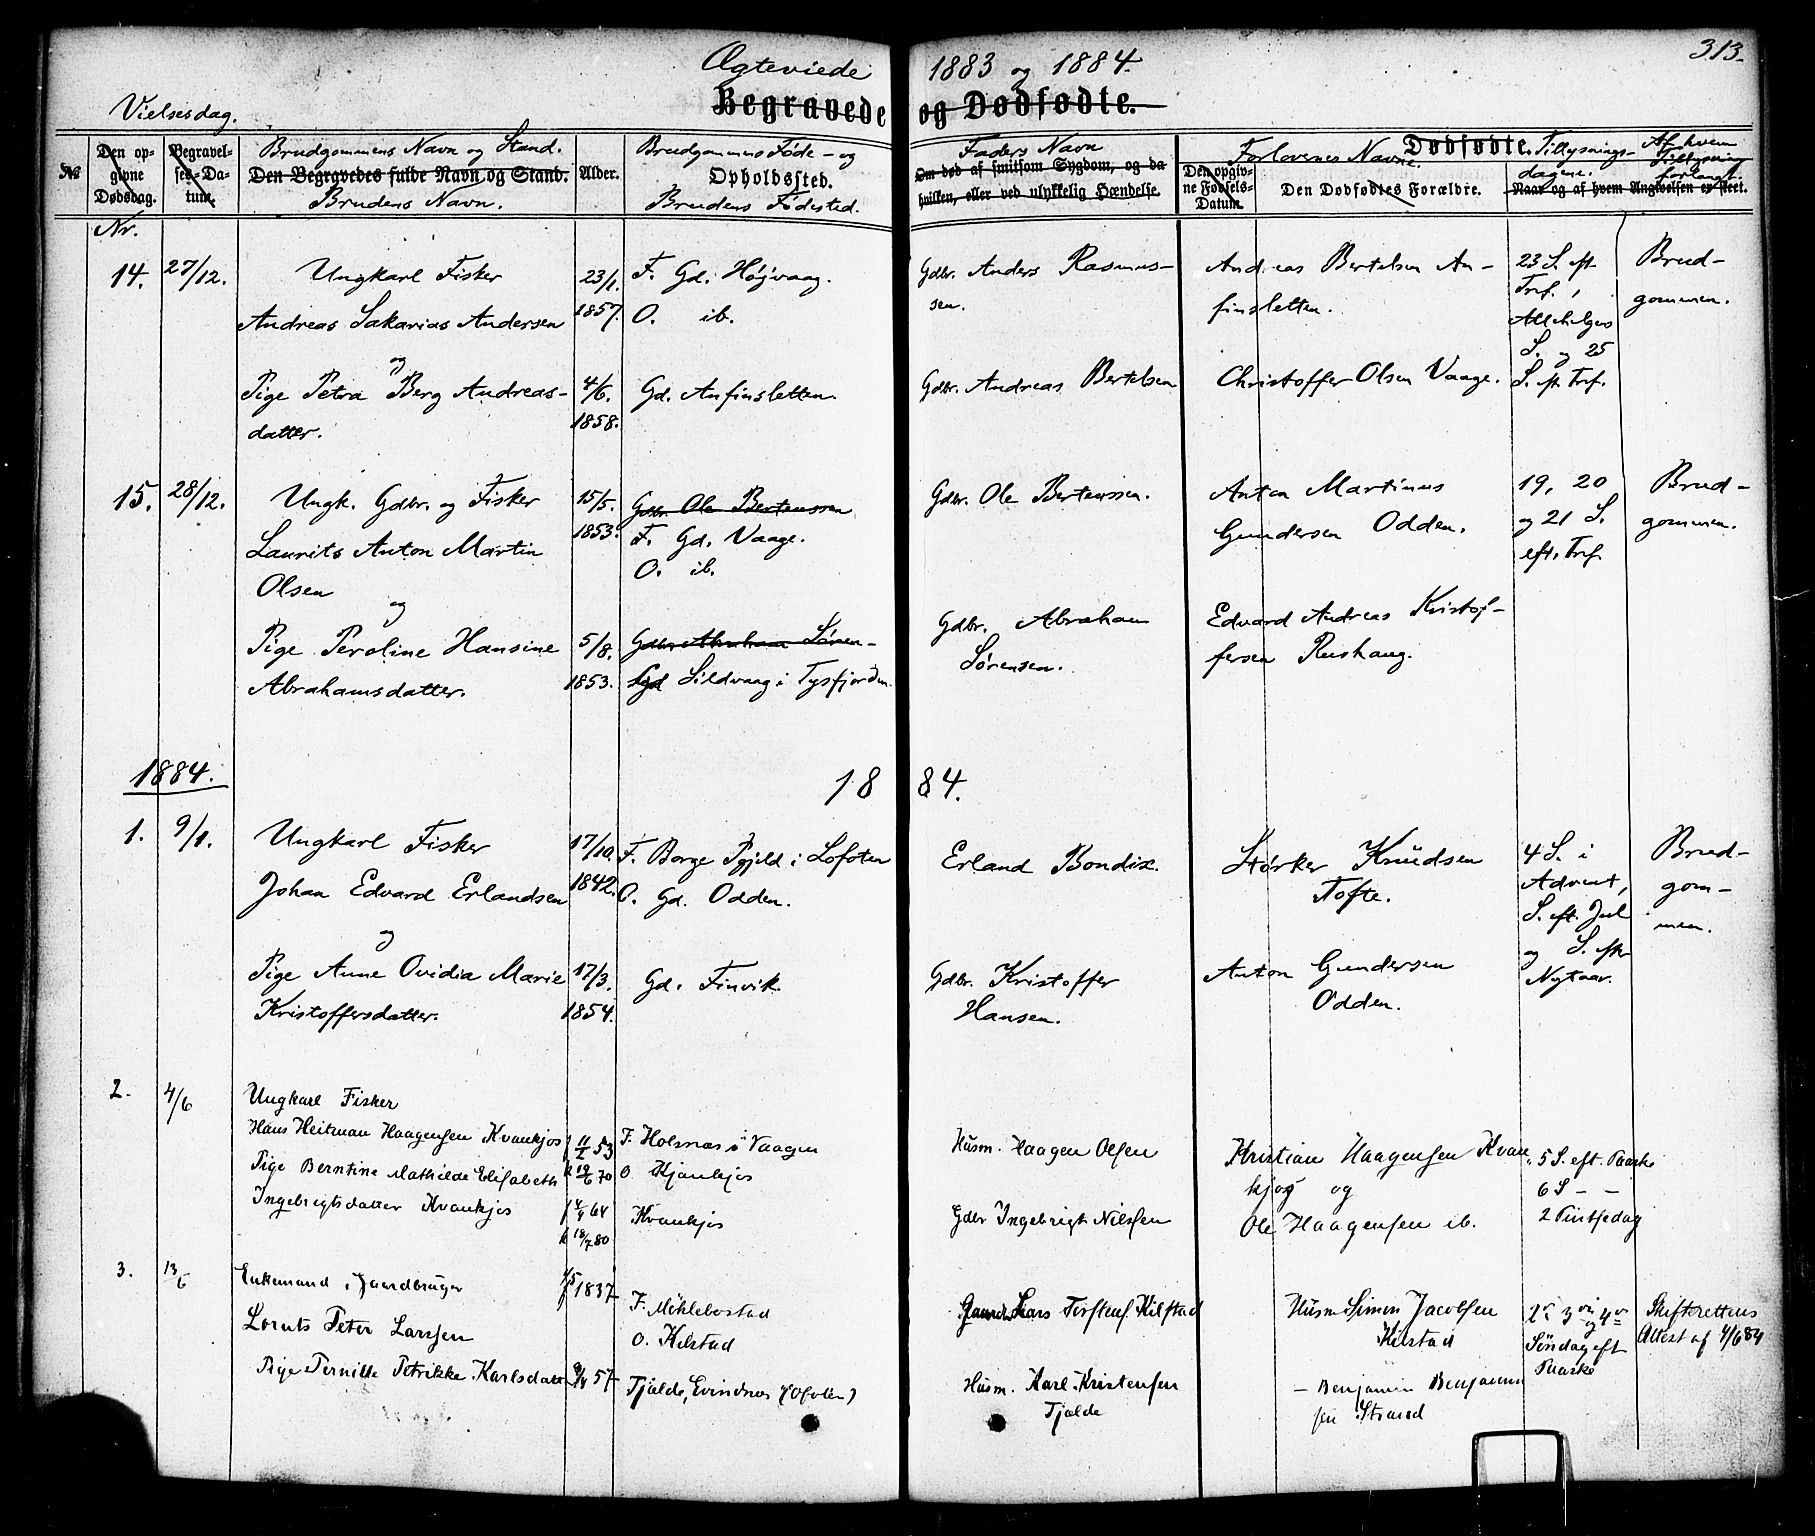 313.
Ægteviede 1883 og 1884.
Begravede og Dødfødte.
Vielsesdag.
№
Den opgivne Dødsdag.
Begravelses-Datum.
Brudgommens Navn og Stand.
Den Begravedes fulde Navn og Stand.
Brudens Navn.
Alder.
Brudgommens Føde- og
Opholdssted.
Brudens Fødested.
Faders Navn
Om død af smitsom Sygdom, og da
hvilken, eller ved ulykkelig Hændelse.
Forlovernes Navne.
Dødfødte.
Den opgivne Fødsels-Datum.
Den Dødfødtes Forældre.
Tillysnings-
dagene.
Af hvem
Tillysning
forlangt.
Naar og af hvem Angivelsen er skeet.
Nr.
14. 27/12. Ungkarl Fisker 23/1. F. Gd. Højvaag. Gdbr. Anders Rasmus- Andreas Bertelsen An- 23 S. eft. Brud-
Andreas Sakarias Andersen 1857. O. ib. sen. finsletten. Tref., gommen.
Allehelgens
og S. og 25
Pige Petra Berg Andreas- 4/6. Gd. Anfinsletten. Gdbr. Andreas Bertelsen Christoffer Olsen Vaage. S. eft. Tref.
datter. 1858.
15. 28/12. Ungk. Gdbr. og Fisker 15/5. Gdbr. Ole Berteussen Gdbr. Ole Berteussen. Anton Martinus 19, 20 Brud-
Laurits Anton Martin 1853. F. Gd. Vaage. Gundersen Odden. og 21 S. gommen.
Olsen O. ib. eft. Tref.
og
Pige Peroline Hansine 5/8. Gdbr. Abraham Søren- Gdbr. Abraham Edvard Andreas Kristof-
Abrahamsdatter. 1853. Sildvaag i Tysfjorden. Sørensen. fersen Rushaug.
1884. 18 84.
1. 9/1. Ungkarl Fisker 17/10. F. Borge Pgjeld i Lofoten Erland Bondix. Størker Knüdsen 4 S. i Brud-
Johan Edvard Erlandsen 1842. O. Gd. Odden. Tofte. Advent, gom-
S. eft. Jul men.
og og S. efter
Pige Anne Ovidia Marie 17/3. Gd. Finvik. Gdbr. Kristoffer Anton Gundersen Nytaar.
Kristoffersdatter. 1854. Hansen. Odden.
2. 4/6 Ungkarl Fisker
Hans Heitman Haagensen Kvankjos 53 F. Holsnæs i Vaagen Husm. Haagen Olsen Kristian Haagensen Kvan- 5 S. eft. Paaske
Pige Berntine Mathilde Elisabeth 70 O Kjankjos kjos og 6 S - -
Ingebrigtsdatter Kvankjos 64 Kvankjos Gdbr Ingebrigt Nilssen Ole Haagensen ib. 2 Pintsedag
18/7 80
3. 13/6 Enkemand, Gaardbruger 1837 F. Meklebostad Lars Torstens. Kilstad Husm Simon Jacobsen 2den 3die og 4de Skifterettens
Lornts Peter Larssen O. Kilstad Kilstad Søndag eft Attest af 4/6 84
Pige Pernille Petrikke Karlsdatt 57 Tjelde, Evindnes (Ofoten) Husm. Karl Kristensen - Benjamin Benjamin Paaske
Tjelde sen Strand